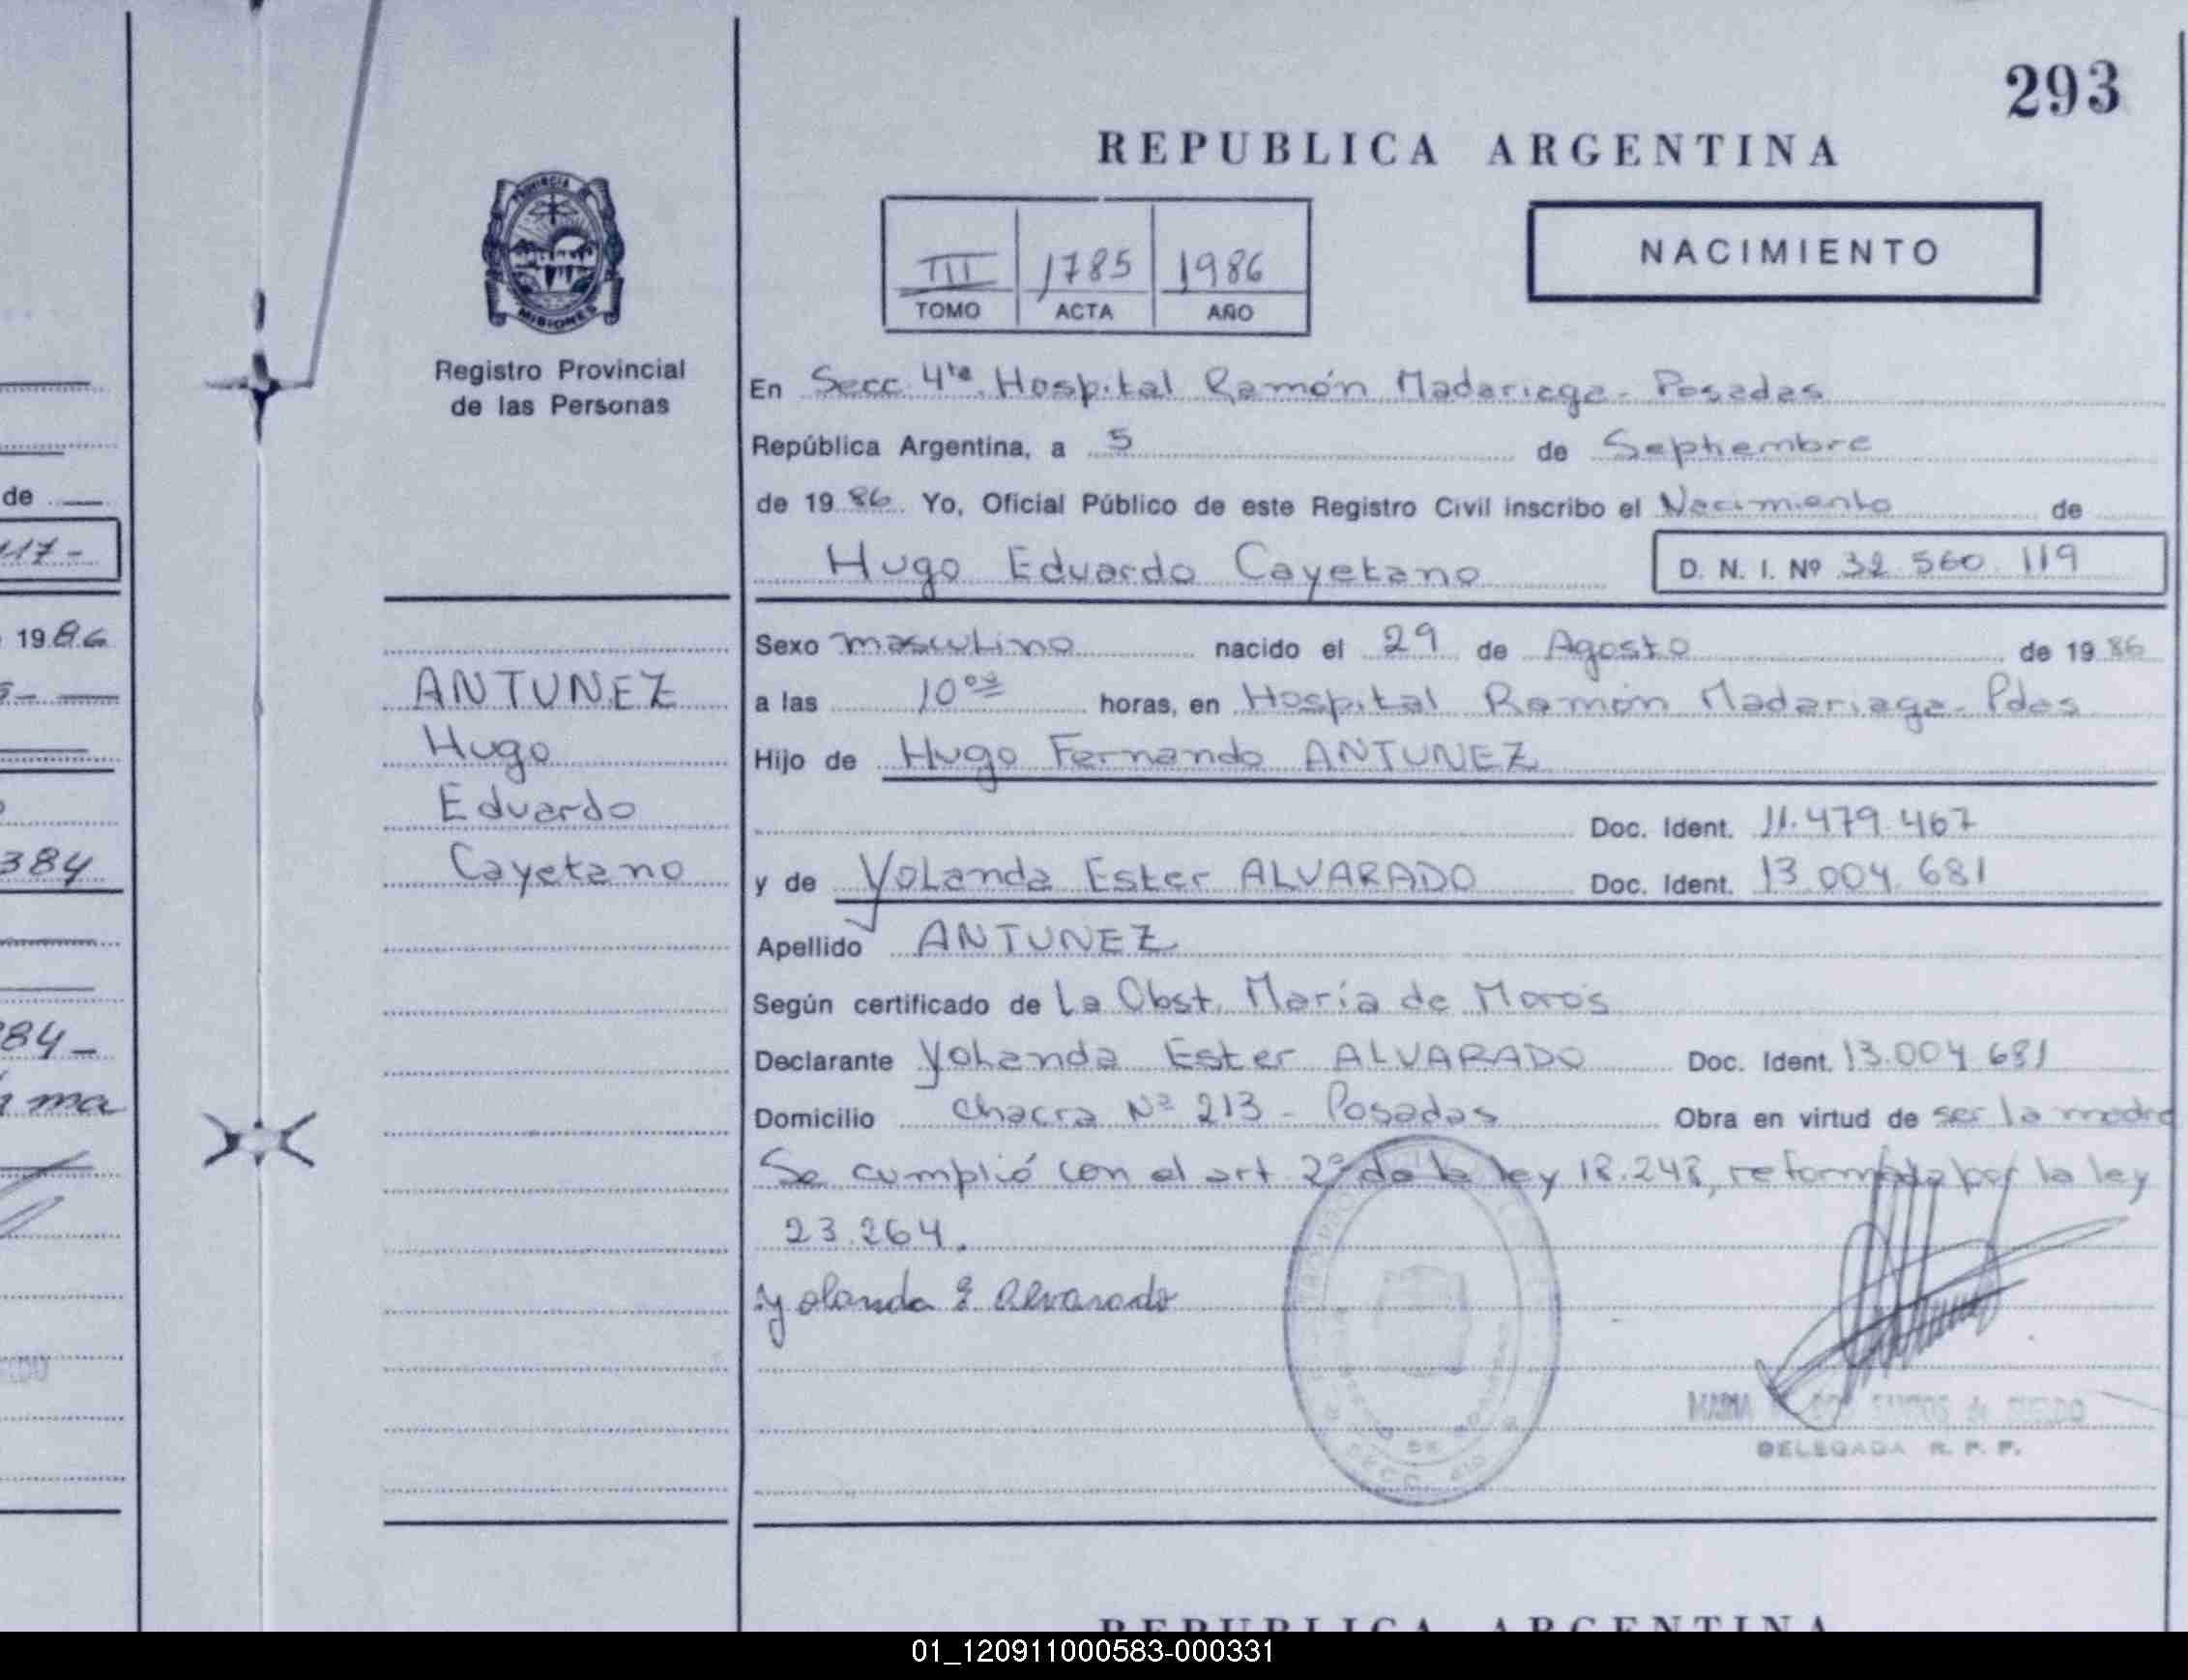 293
REPUBLICA ARGENTINA
NACIMIENTO
III 1785 1986
TOMO ACTA AÑO
PROVINCIA DE
MISIONES
Registro Provincial
de las Personas
En Secc. 4ta. Hospital Ramón Madariaga - Posadas
República Argentina, a 5 de Septiembre
de 1986. Yo, Oficial Público de este Registro Civil inscribo el Nacimiento de
Hugo Eduardo Cayetano D. N. I. Nº 32.560.119
Sexo masculino nacido el 29 de Agosto de 1986
a las 10:00 horas, en Hospital Ramón Madariaga - Pdas
Hijo de Hugo Fernando ANTUNEZ
Doc. Ident. 11.479.467
y de Yolanda Ester ALVARADO Doc. Ident. 13.004.681
Apellido ANTUNEZ
Según certificado de La Obst. María de Moros
Declarante Yolanda Ester ALVARADO Doc. Ident. 13.004.681
Domicilio Chacra Nº 213 - Posadas Obra en virtud de ser la madre
Se cumplió con el art 2º de la ley 18.248, reformada por la ley
23.264.
Yolanda E Alvarado
MARIA DOS SANTOS de
DELEGADA R. P. P.
ANTUNEZ
Hugo
Eduardo
Cayetano
de
117-
1986
384
84-
ma
REPUBLICA ARGENTINA
01_120911000583-000331